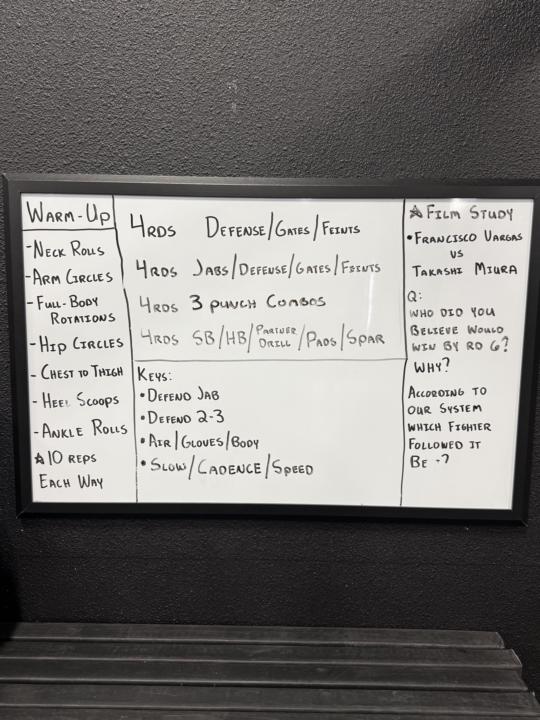 Warm-Up
- Neck Rolls
- Arm Circles
- Full-Body
Rotations
- Hip Circles
- Chest to Thigh
- Heel Scoops
- Ankle Rolls
☆10 reps
Each Way
4RDS Defense/Gates/Feints
4RDS Jabs/Defense/Gates/Feints
4RDS 3 Punch Combos
4RDS SB/HB/Partner Drill/Pads/Spar
Keys:
• Defend Jab
• Defend 2-3
• Air/Gloves/Body
• Slow/Cadence/Speed
☆ Film Study
• Francisco Vargas
vs
Takashi Miura
Q:
Who did you
believe would
win by RD 6?
Why?
According to
our system
which fighter
followed it
Be -?